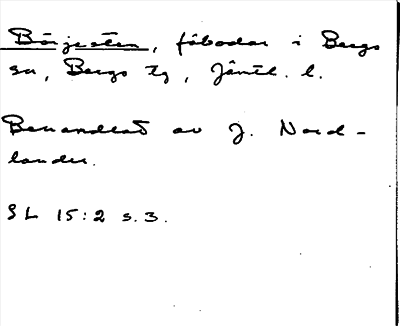 Börjesåten, fäbodar i Bergs
sn, Bergs tg, Jämtl. l.
Behandlat av J. Nord-
lander.
SL 15:2 s.3.